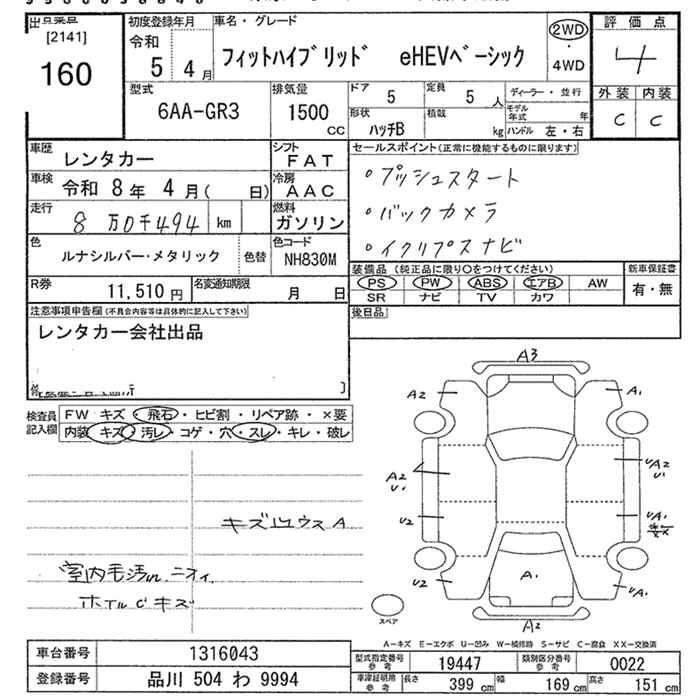 [2141]
160
初度登録年月
令和
5 4月
車名・グレード
フィットハイブリッド eHEVベーシック
2WD
・
4WD
評価点
4
型式
6AA-GR3
排気量
1500
CC
ドア
5
定員
5 人
ディーラー・並行
形状
ハッチB
積載
kg
モデル年式 年
ハンドル 左・右
外装 内装
C C
車歴
レンタカー
シフト
FAT
車検
令和 8年 4月( 日)
冷房
AAC
走行
8万0千494 km
燃料
ガソリン
色
ルナシルバー・メタリック
色替
色コード
NH830M
R券
11,510円
名変通知期限
月 日
セールスポイント(正常に機能するものに限ります)
・プッシュスタート
・バックカメラ
・イクリプスナビ
装備品 (純正品に限り○をつけてください)
PS PW ABS エアB AW
SR ナビ TV カワ
新車保証書
有・無
後日品
注意事項申告欄(不具合内容等は具体的に記入して下さい)
レンタカー会社出品
検査員
記入欄
FW キズ・飛石・ヒビ割・リペア跡・×要
内装 キズ・汚レ・コゲ・穴・スレ・キレ・破レ
室内毛汚れ ニオイ
ホイルCキズ
A3
A2
A1
A2
U1
UA2
U1
U2
UA1
U2
A1
UA1
A2
スペア
A-キズ E-エクボ U-凹み W-補修跡 S-サビ C-腐食 XX-交換済
車台番号
1316043
登録番号
品川 504 わ 9994
型式指定番号
参考
19447
類別区分番号
参考
0022
車庫証明用
参考
長さ
399 cm
幅
169 cm
高さ
151 cm